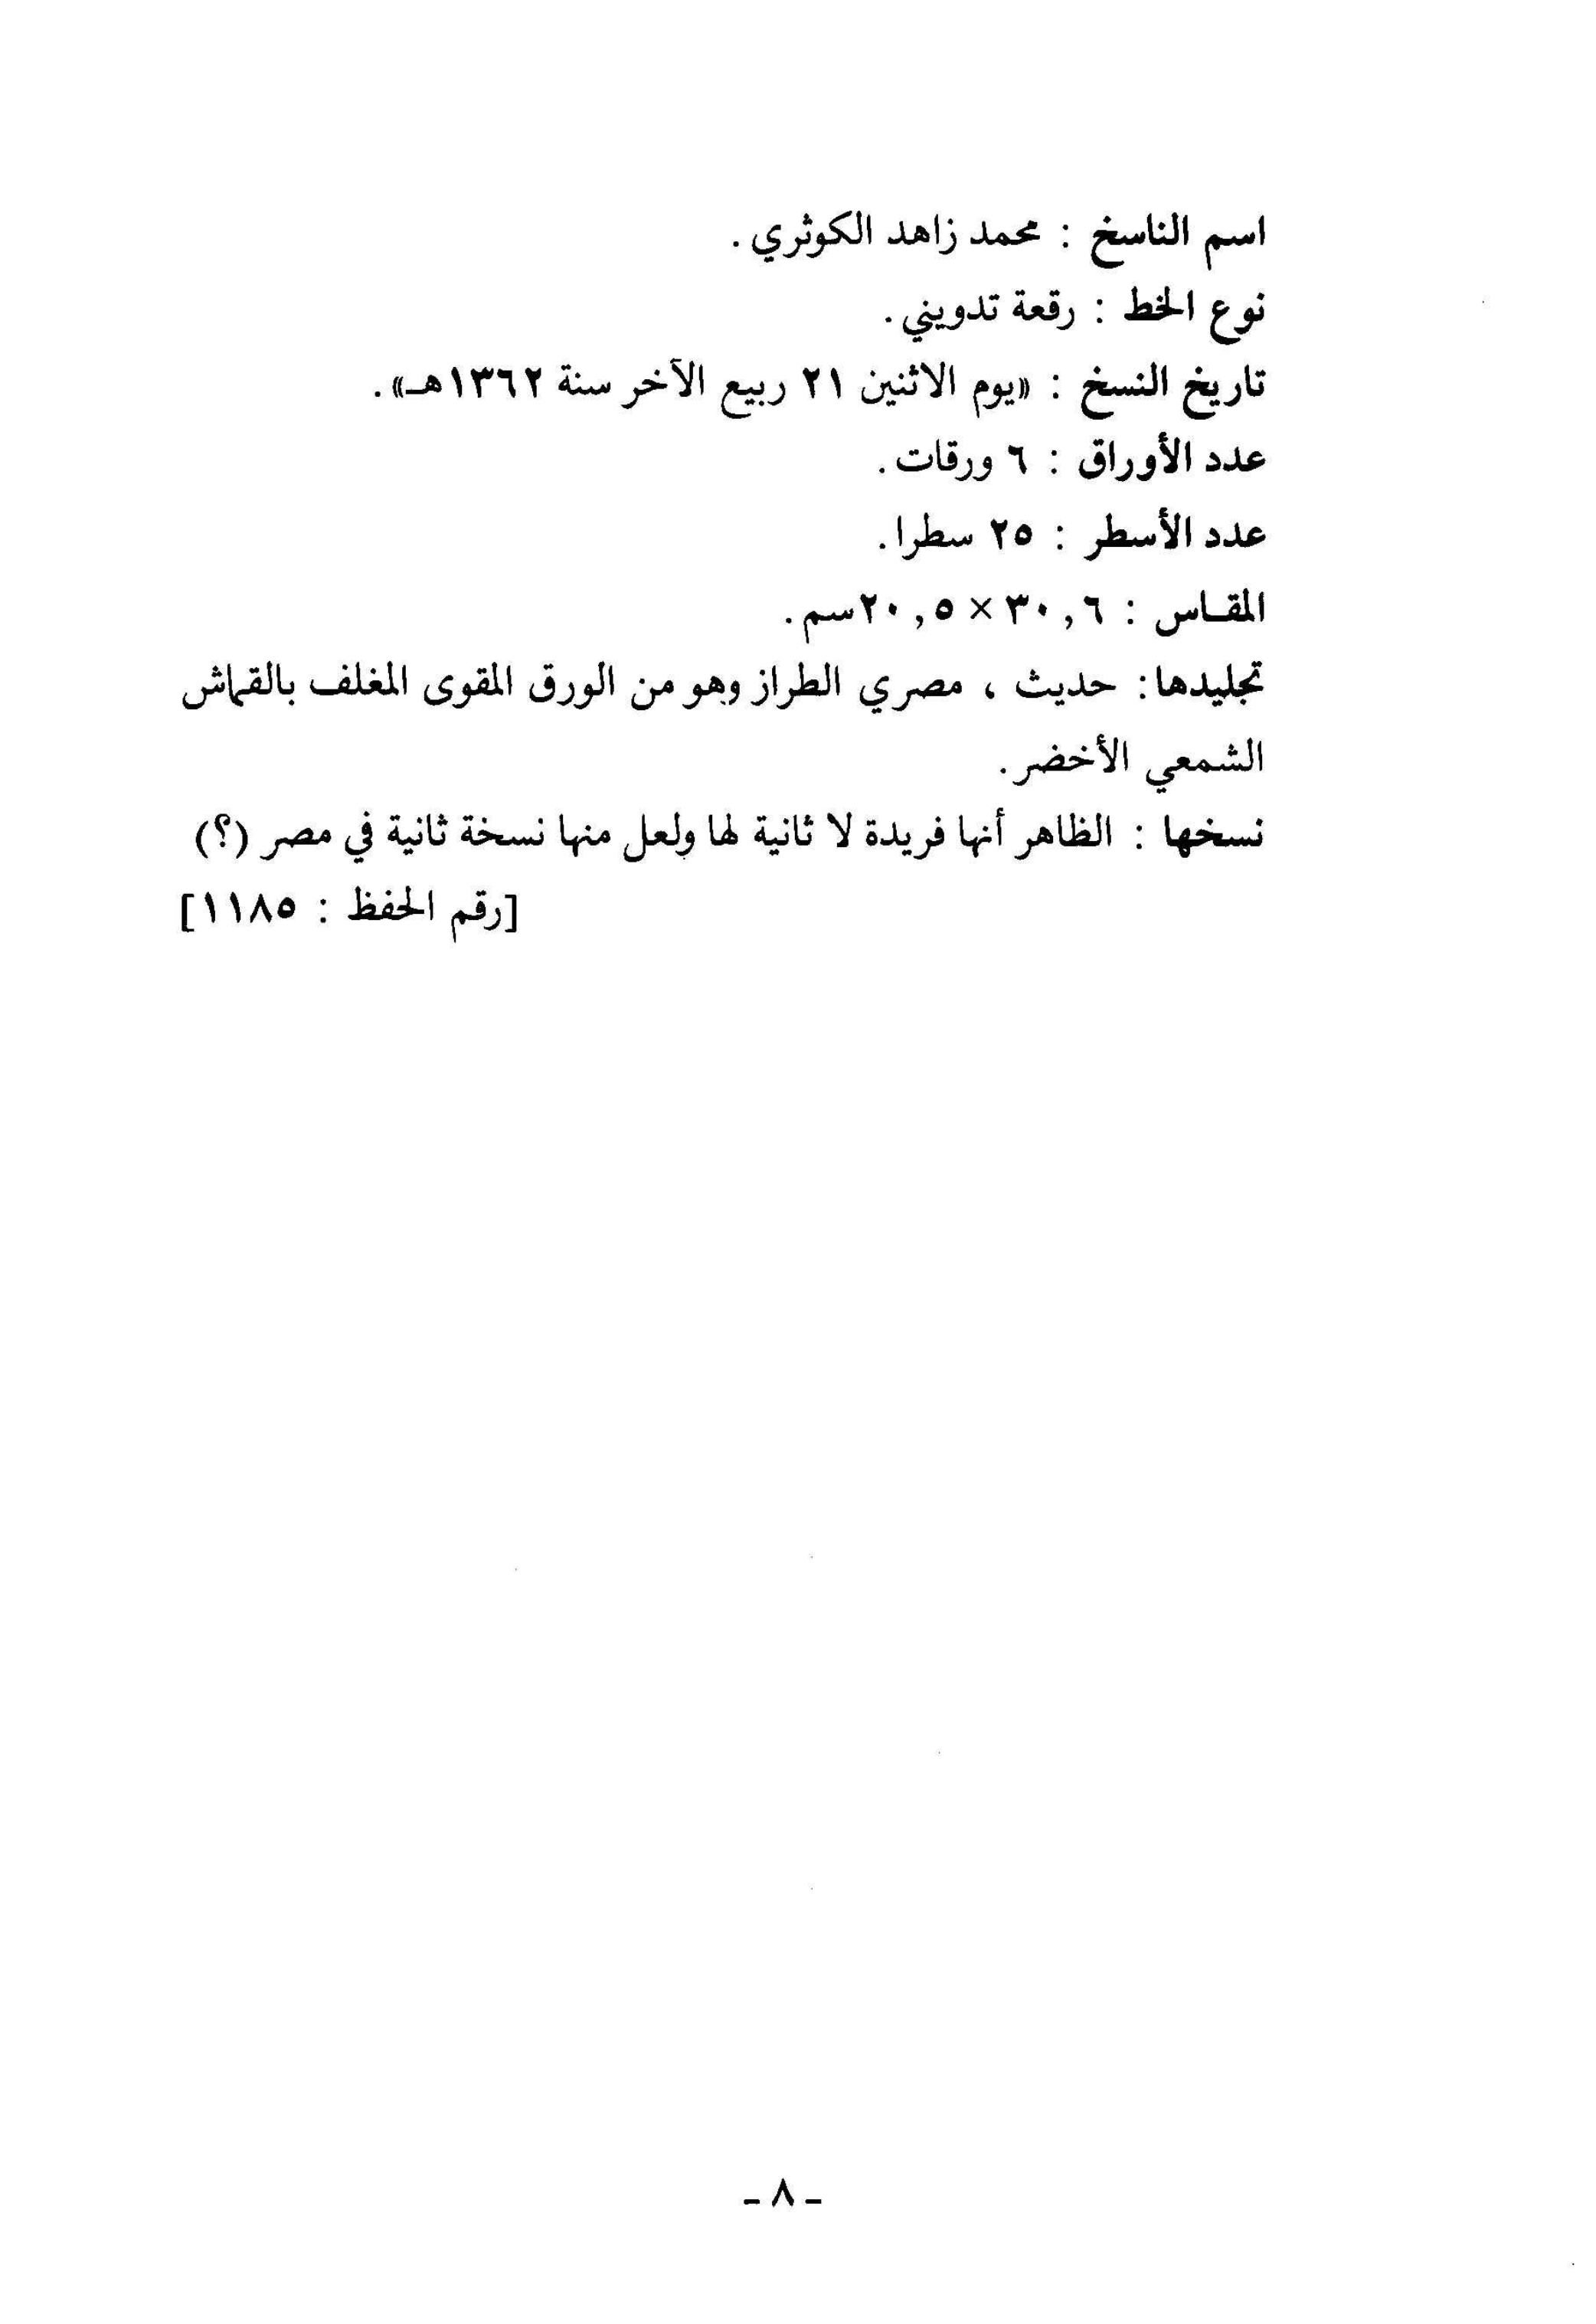 اسم الناسخ : محمد زاهد الكوثري .
نوع الخط : رقعة تدويني .
تاريخ النسخ : «يوم الاثنين ٢١ ربيع الآخر سنة ١٣٦٢هـ» .
عدد الأوراق : ٦ ورقات .
عدد الأسطر : ٢٥ سطرا .
المقـاس : ٣٠,٦ × ٢٠,٥سم .
تجليدها : حديث ، مصري الطراز وهو من الورق المقوى المغلف بالقماش
الشمعي الأخضر .
نسخها : الظاهر أنها فريدة لا ثانية لها ولعل منها نسخة ثانية في مصر (؟)
[رقم الحفظ : ١١٨٥]
- ٨ -